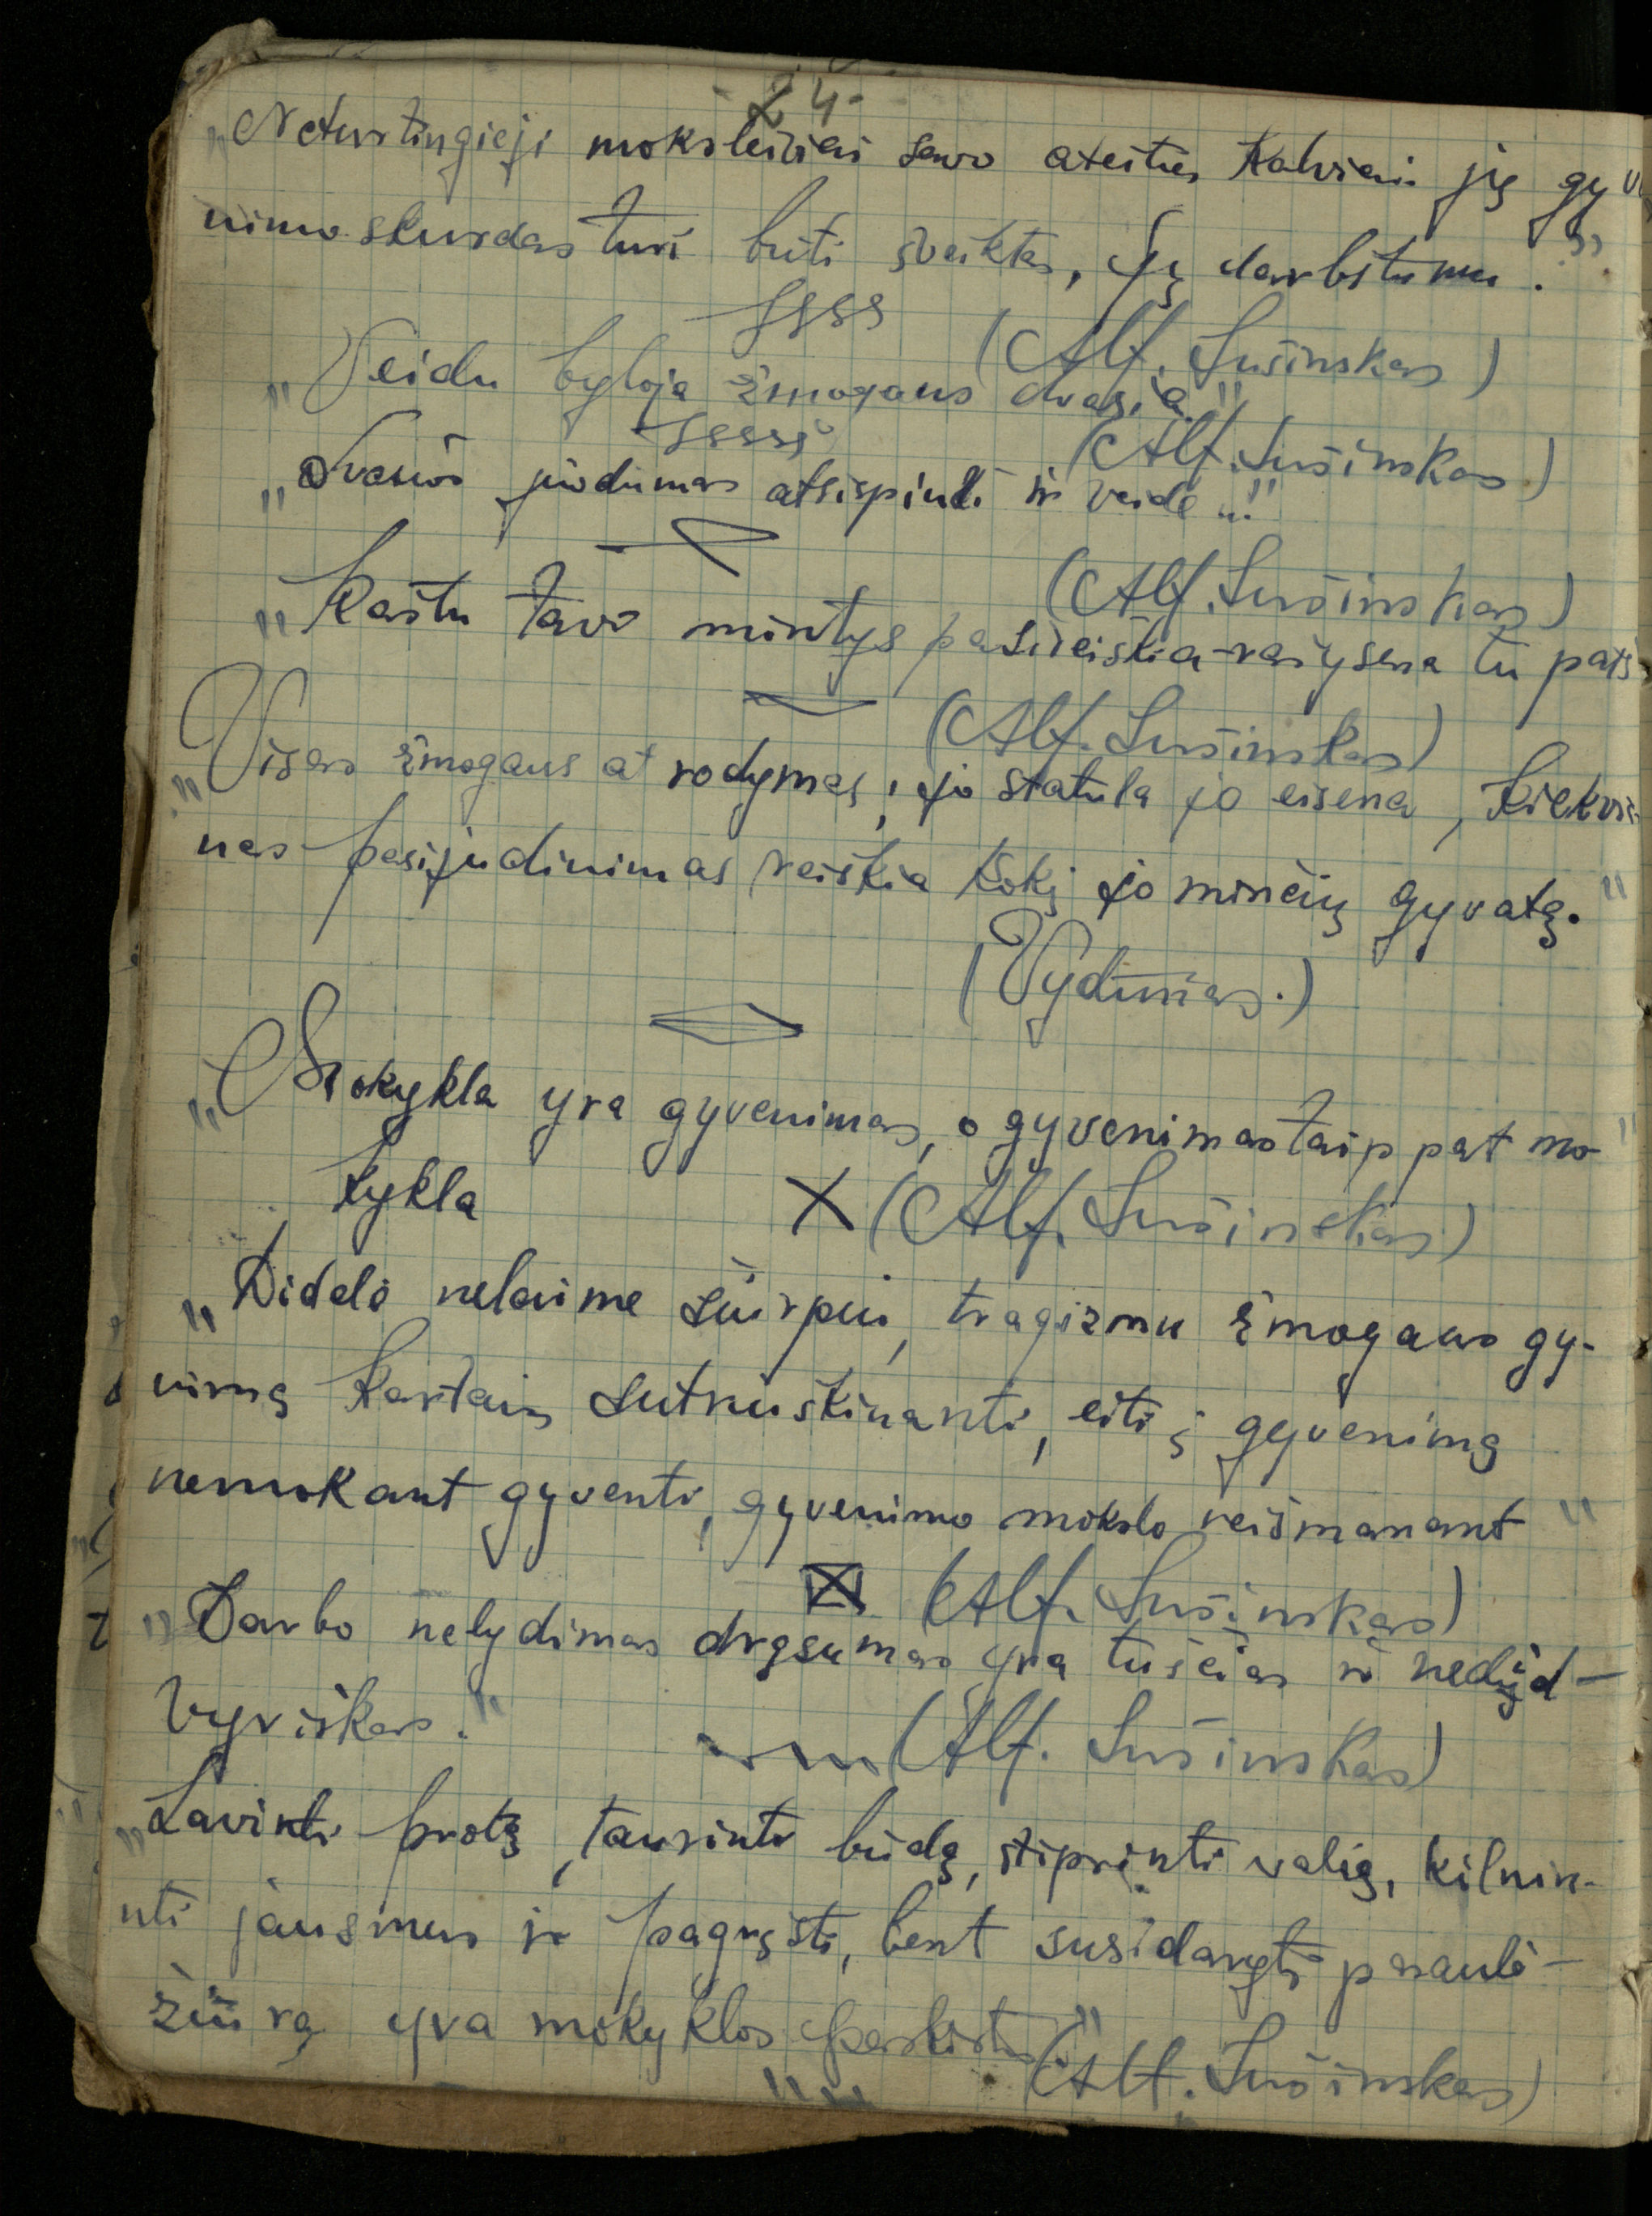 - 24 -
„Neturtingieji moksleiviai savo ateities kalviai jų gyve
nimo skurdas turi būti sveiktas, jų darbštumu."
(Alf. Sušinskas)
„Veidu byloja žmogaus dvasia"
(Alf. Sušinskas)
„Dvasios judumas atsispindi ir veide..."
(Alf. Sušinskas)
„Raštu tavo mintys pasireiškia-rašysena tu pats
(Alf. Sušinskas)
„Visas žmogaus atrodymas, jo statula jo eisena, kiekvie-
nas pasijudinimas reiškia kokį jo minčių gyvatą."
(Vydūnas.)
„Mokykla yra gyvenimas, o gyvenimas taip pat mo-
kykla"
(Alf. Sušinskas)
„Didelė nelaimė šiurpiu, tragizmu žmogaus gy-
nimą kartais sutriuškinanti, eiti į gyvenimą
nemokant gyventi, gyvenimo mokslo neišmanant"
(Alf. Sušinskas)
„Darbo nelydimas drąsumas yra tuščias ir nedid-
vyriškas."
(Alf. Sušinskas)
„Lavinti protą, taurinti būdą, stiprinti valią, kilnin-
nti jausmus ir pagrįsti, bent susidaryti pasaulė-
žiūrą yra mokyklos paskirtis"
(Alf. Sušinskas)